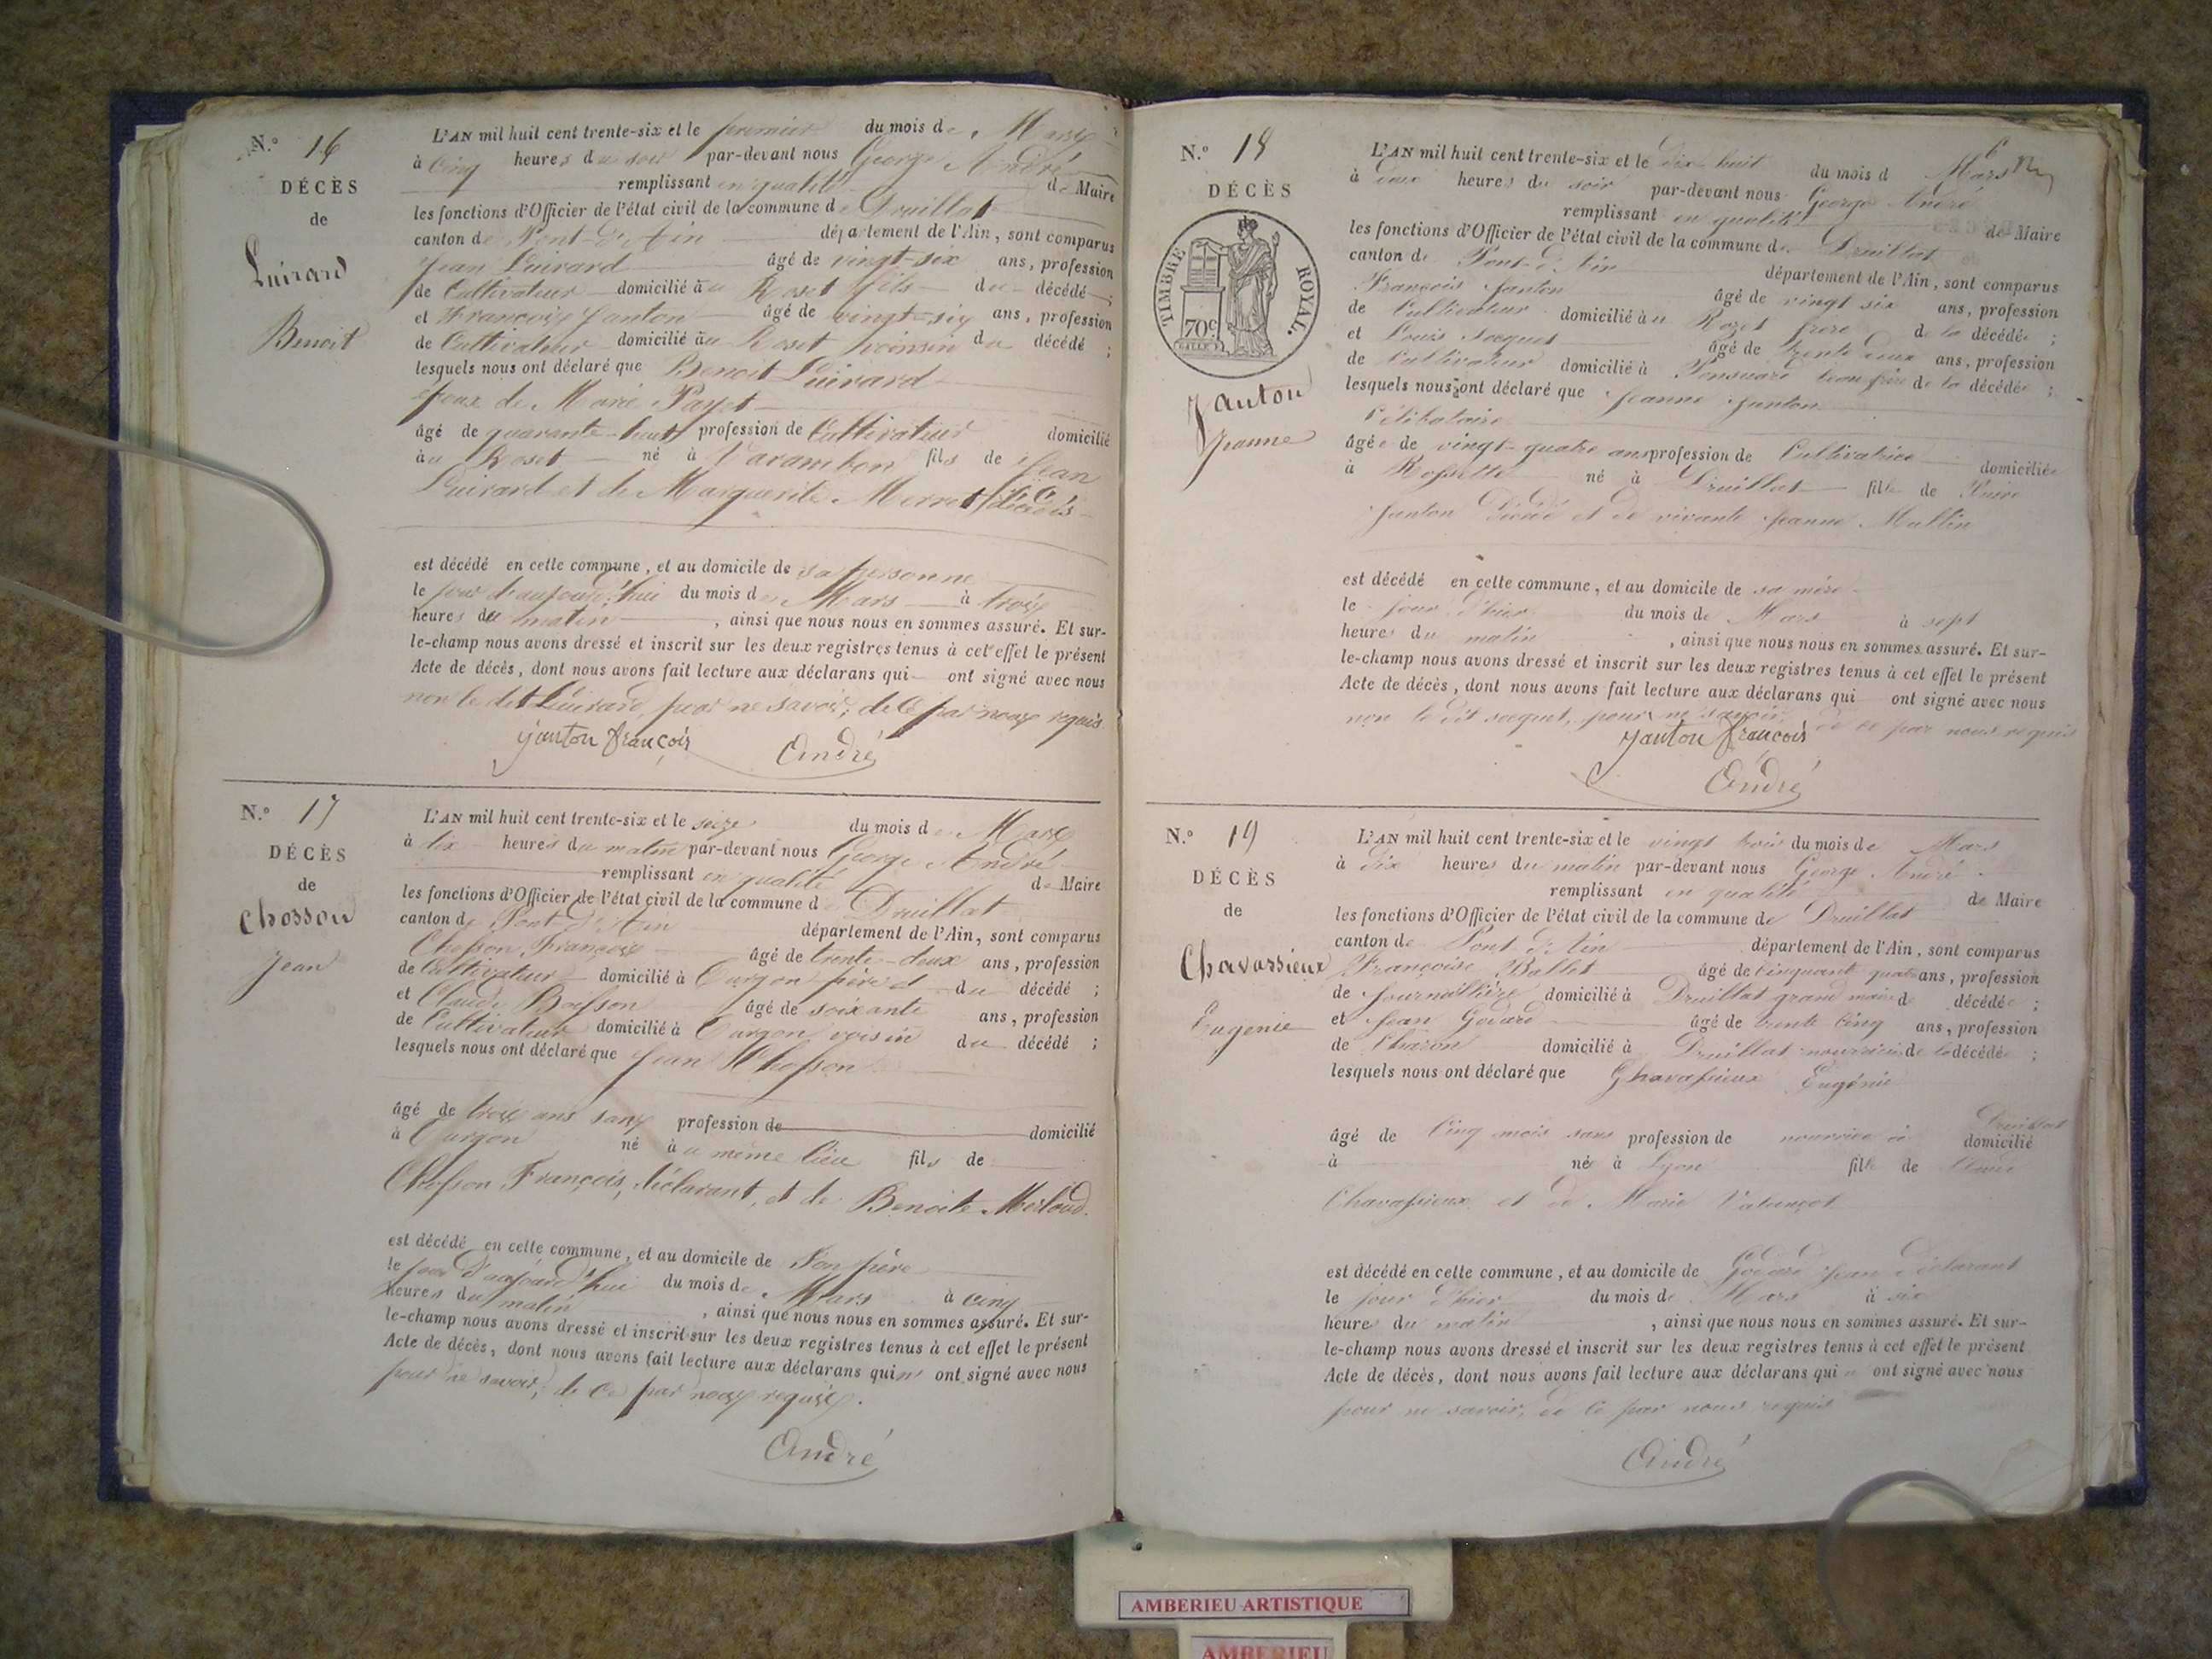 N.° 16
DÉCÈS
de
Luirard
Benoit
L'AN mil huit cent trente-six et le premier du mois de Mars
à cinq heures du soir par-devant nous George André
remplissant en qualité de Maire
les fonctions d'Officier de l'état civil de la commune de Druillat
canton de Pont-d'Ain département de l'Ain, sont comparus
Jean Luirard âgé de vingt-six ans, profession
de Cultivateur domicilié au Roset fils du décédé ;
et François Janton âgé de vingt-six ans, profession
de Cultivateur domicilié au Roset voinsin du décédé ;
lesquels nous ont déclaré que Benoit Luirard
époux de Marie Payet
âgé de quarante-huit profession de Cultivateur domicilié
au Roset né à Varambon fils de Jean
Luirard et de Marguerite Merret décédés
est décédé en cette commune, et au domicile de sa personne
le jour d'aujourd'hui du mois de Mars à trois
heures du matin, ainsi que nous nous en sommes assuré. Et sur-
le-champ nous avons dressé et inscrit sur les deux registres tenus à cet effet le présent
Acte de décès, dont nous avons fait lecture aux déclarans qui ont signé avec nous
non le dit Luirard, pour ne savoir, de ce par nous requis
janton françois André
N.° 17
DÉCÈS
de
Chosson
Jean
L'AN mil huit cent trente-six et le seize du mois de Mars
à dix heures du matin par-devant nous George André
remplissant en qualité de Maire
les fonctions d'Officier de l'état civil de la commune de Druillat
canton de Pont d'Ain département de l'Ain, sont comparus
Chosson François âgé de trente-deux ans, profession
de Cultivateur domicilié à Turgon père du décédé ;
et Claude Boisson âgé de soixante ans, profession
de Cultivateur domicilié à Turgon voisin du décédé ;
lesquels nous ont déclaré que Jean Chosson
âgé de trois ans sans profession de domicilié
à Turgon né au même lieu fils de
Chosson François, déclarant, et de Benoite Merloud.
est décédé en cette commune, et au domicile de Son père
le jour d'aujourd'hui du mois de Mars à cinq
heures du matin, ainsi que nous nous en sommes assuré. Et sur-
le-champ nous avons dressé et inscrit sur les deux registres tenus à cet effet le présent
Acte de décès, dont nous avons fait lecture aux déclarans qui n' ont signé avec nous
pour ne savoir, de ce par nous requis.
André
N.° 18
DÉCÈS
TIMBRE ROYAL.
70c
Janton
Jeanne
L'AN mil huit cent trente-six et le dix-huit du mois d Mars
à deux heures du soir par-devant nous George André
remplissant en qualité de Maire
les fonctions d'Officier de l'état civil de la commune de Druillat
canton de Pont-d'Ain département de l'Ain, sont comparus
François Janton âgé de vingt six ans, profession
de Cultivateur domicilié au Rozet frère de la décédée ;
et Louis Jacquet âgé de trente deux ans, profession
de Cultivateur domicilié à beau frère de la décédée ;
lesquels nous ont déclaré que Jeanne Janton
Célibataire
âgée de vingt-quatre ans profession de Cultivatrice domiciliée
à né à Druillat fille de
Janton décédé et de vivante Jeanne Mallin
est décédé en cette commune, et au domicile de sa mère
le jour d'hier du mois de Mars à sept
heures du matin, ainsi que nous nous en sommes assuré. Et sur-
le-champ nous avons dressé et inscrit sur les deux registres tenus à cet effet le présent
Acte de décès, dont nous avons fait lecture aux déclarans qui ont signé avec nous
non le dit Jacquet, pour ne savoir, de ce par nous requis
janton françois
André
N.° 19
DÉCÈS
de
Chavassieux
Eugenie
L'AN mil huit cent trente-six et le vingt trois du mois de Mars
à dix heures du matin par-devant nous George André
remplissant en qualité de Maire
les fonctions d'Officier de l'état civil de la commune de Druillat
canton de Pont-d'Ain département de l'Ain, sont comparus
Françoise Ballet âgé de cinquante quatre ans, profession
de Journallière domicilié à Druillat décédée ;
et Jean Godard âgé de trente cinq ans, profession
de Charon domicilié à Druillat de la décédée ;
lesquels nous ont déclaré que Chavassieux Eugénie
âgé de cinq mois sans profession de nourrice à Druillat domicilié
à née à Lyon fille de
Chavassieux et de Marie
est décédé en cette commune, et au domicile de Godard Jean déclarant
le jour d'hier du mois de Mars à six
heures du matin, ainsi que nous nous en sommes assuré. Et sur-
le-champ nous avons dressé et inscrit sur les deux registres tenus à cet effet le présent
Acte de décès, dont nous avons fait lecture aux déclarans qui ont signé avec nous
pour ne savoir, de ce par nous requis
André
AMBERIEU ARTISTIQUE
AMBERIEU